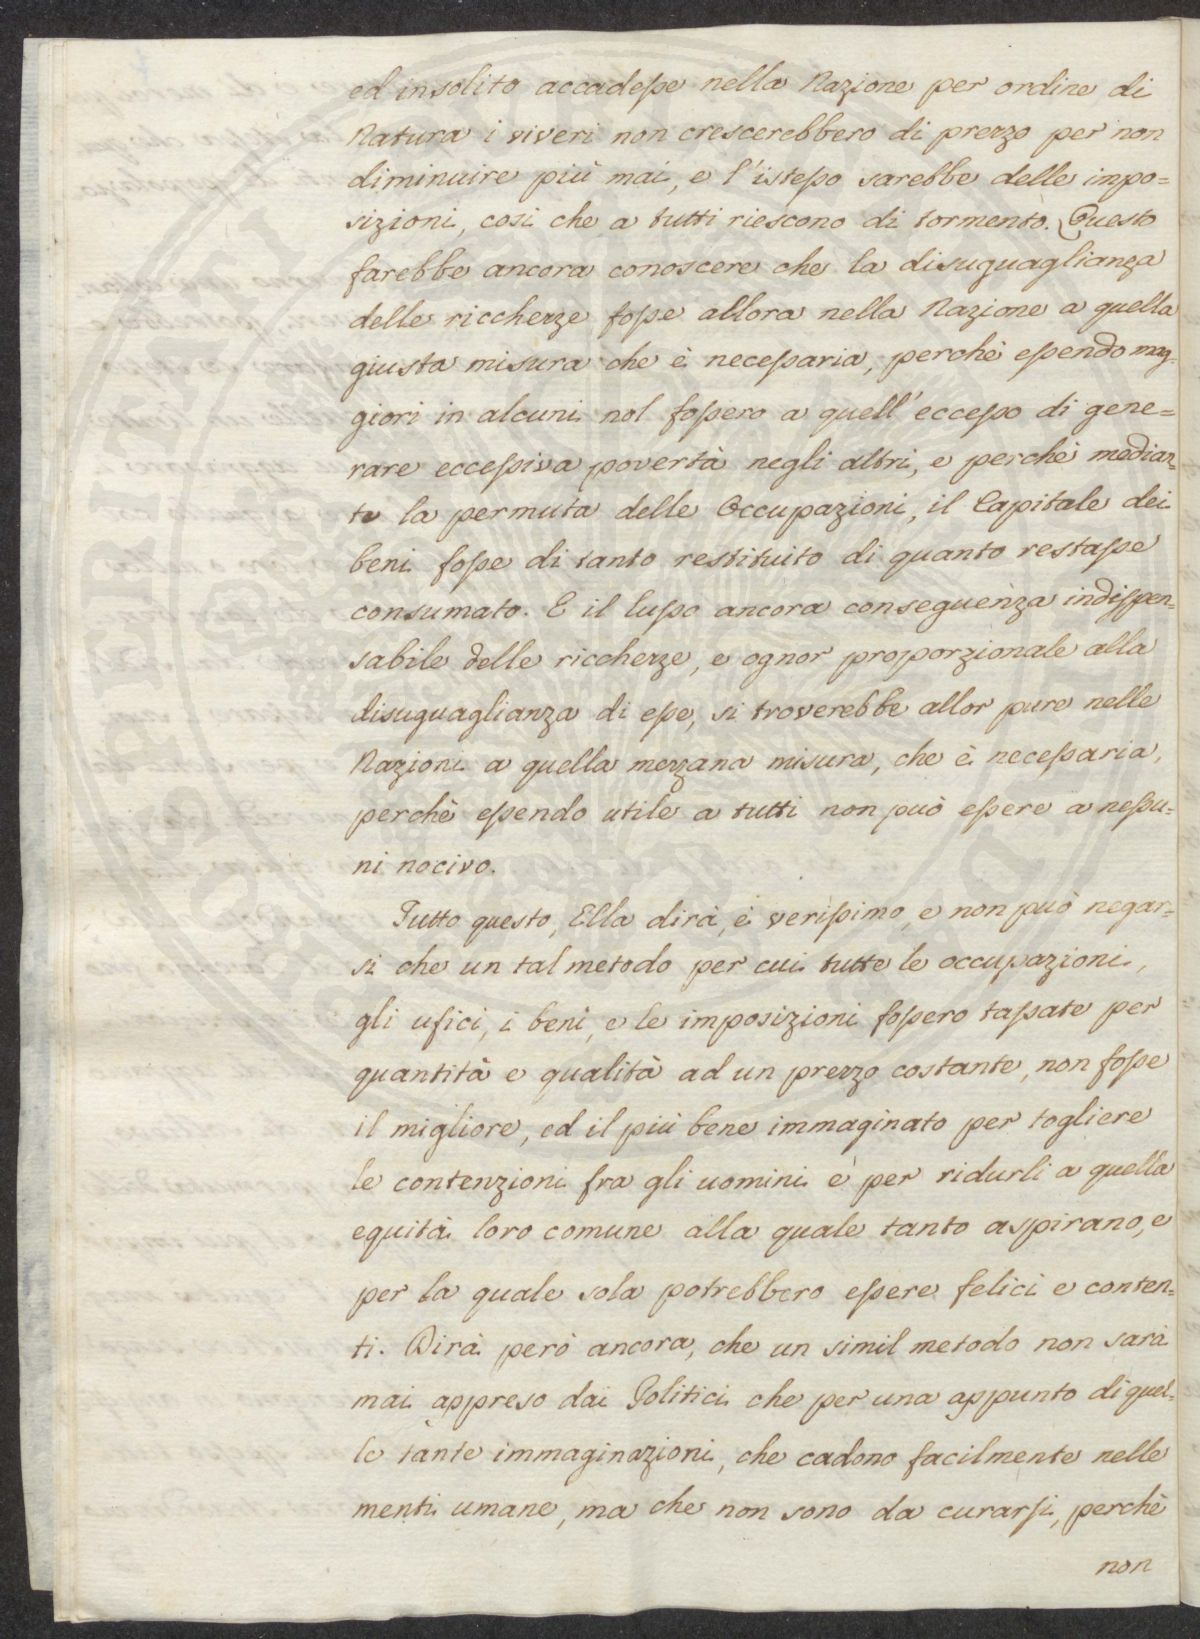 ed insolito accadesse nella Nazione per ordine di
Natura i viveri non crescerebbero di prezzo per non
diminuire più mai, e l'istesso sarebbe delle impo=
sizioni, così che a tutti riescono di tormento. Questo
farebbe ancora conoscere che la disuguaglianza
delle ricchezze fosse allora nella Nazione a quella
giusta misura che è necessaria, perchè essendo mag=
giori in alcuni nol fossero a quell'eccesso di gene=
rare eccessiva povertà negli altri, e perchè median=
te la permuta delle Occupazioni, il Capitale dei
beni fosse di tanto restituito di quanto restasse
consumato. E il lusso ancora conseguenza indispen=
sabile delle ricchezze, e ognor proporzionale alla
disuguaglianza di esse, si troverebbe allor pure nelle
Nazioni a quella mezzana misura, che è necessaria,
perchè essendo utile a tutti non può essere a nessu=
ni nocivo.
Tutto questo, Ella dirà, è verissimo, e non può negar=
si che un tal metodo per cui tutte le occupazioni,
gli ufici, i beni, e le imposizioni fossero tassate per
quantità e qualità ad un prezzo costante, non fosse
il migliore, ed il più bene immaginato per togliere
le contenzioni fra gli uomini e per ridurli a quella
equità loro comune alla quale tanto aspirano, e
per la quale sola potrebbero essere felici e conten=
ti. Dirà però ancora, che un simil metodo non sarà
mai appreso dai Politici che per una appunto di quel=
le tante immaginazioni, che cadono facilmente nelle
menti umane, ma che non sono da curarsi, perchè
non